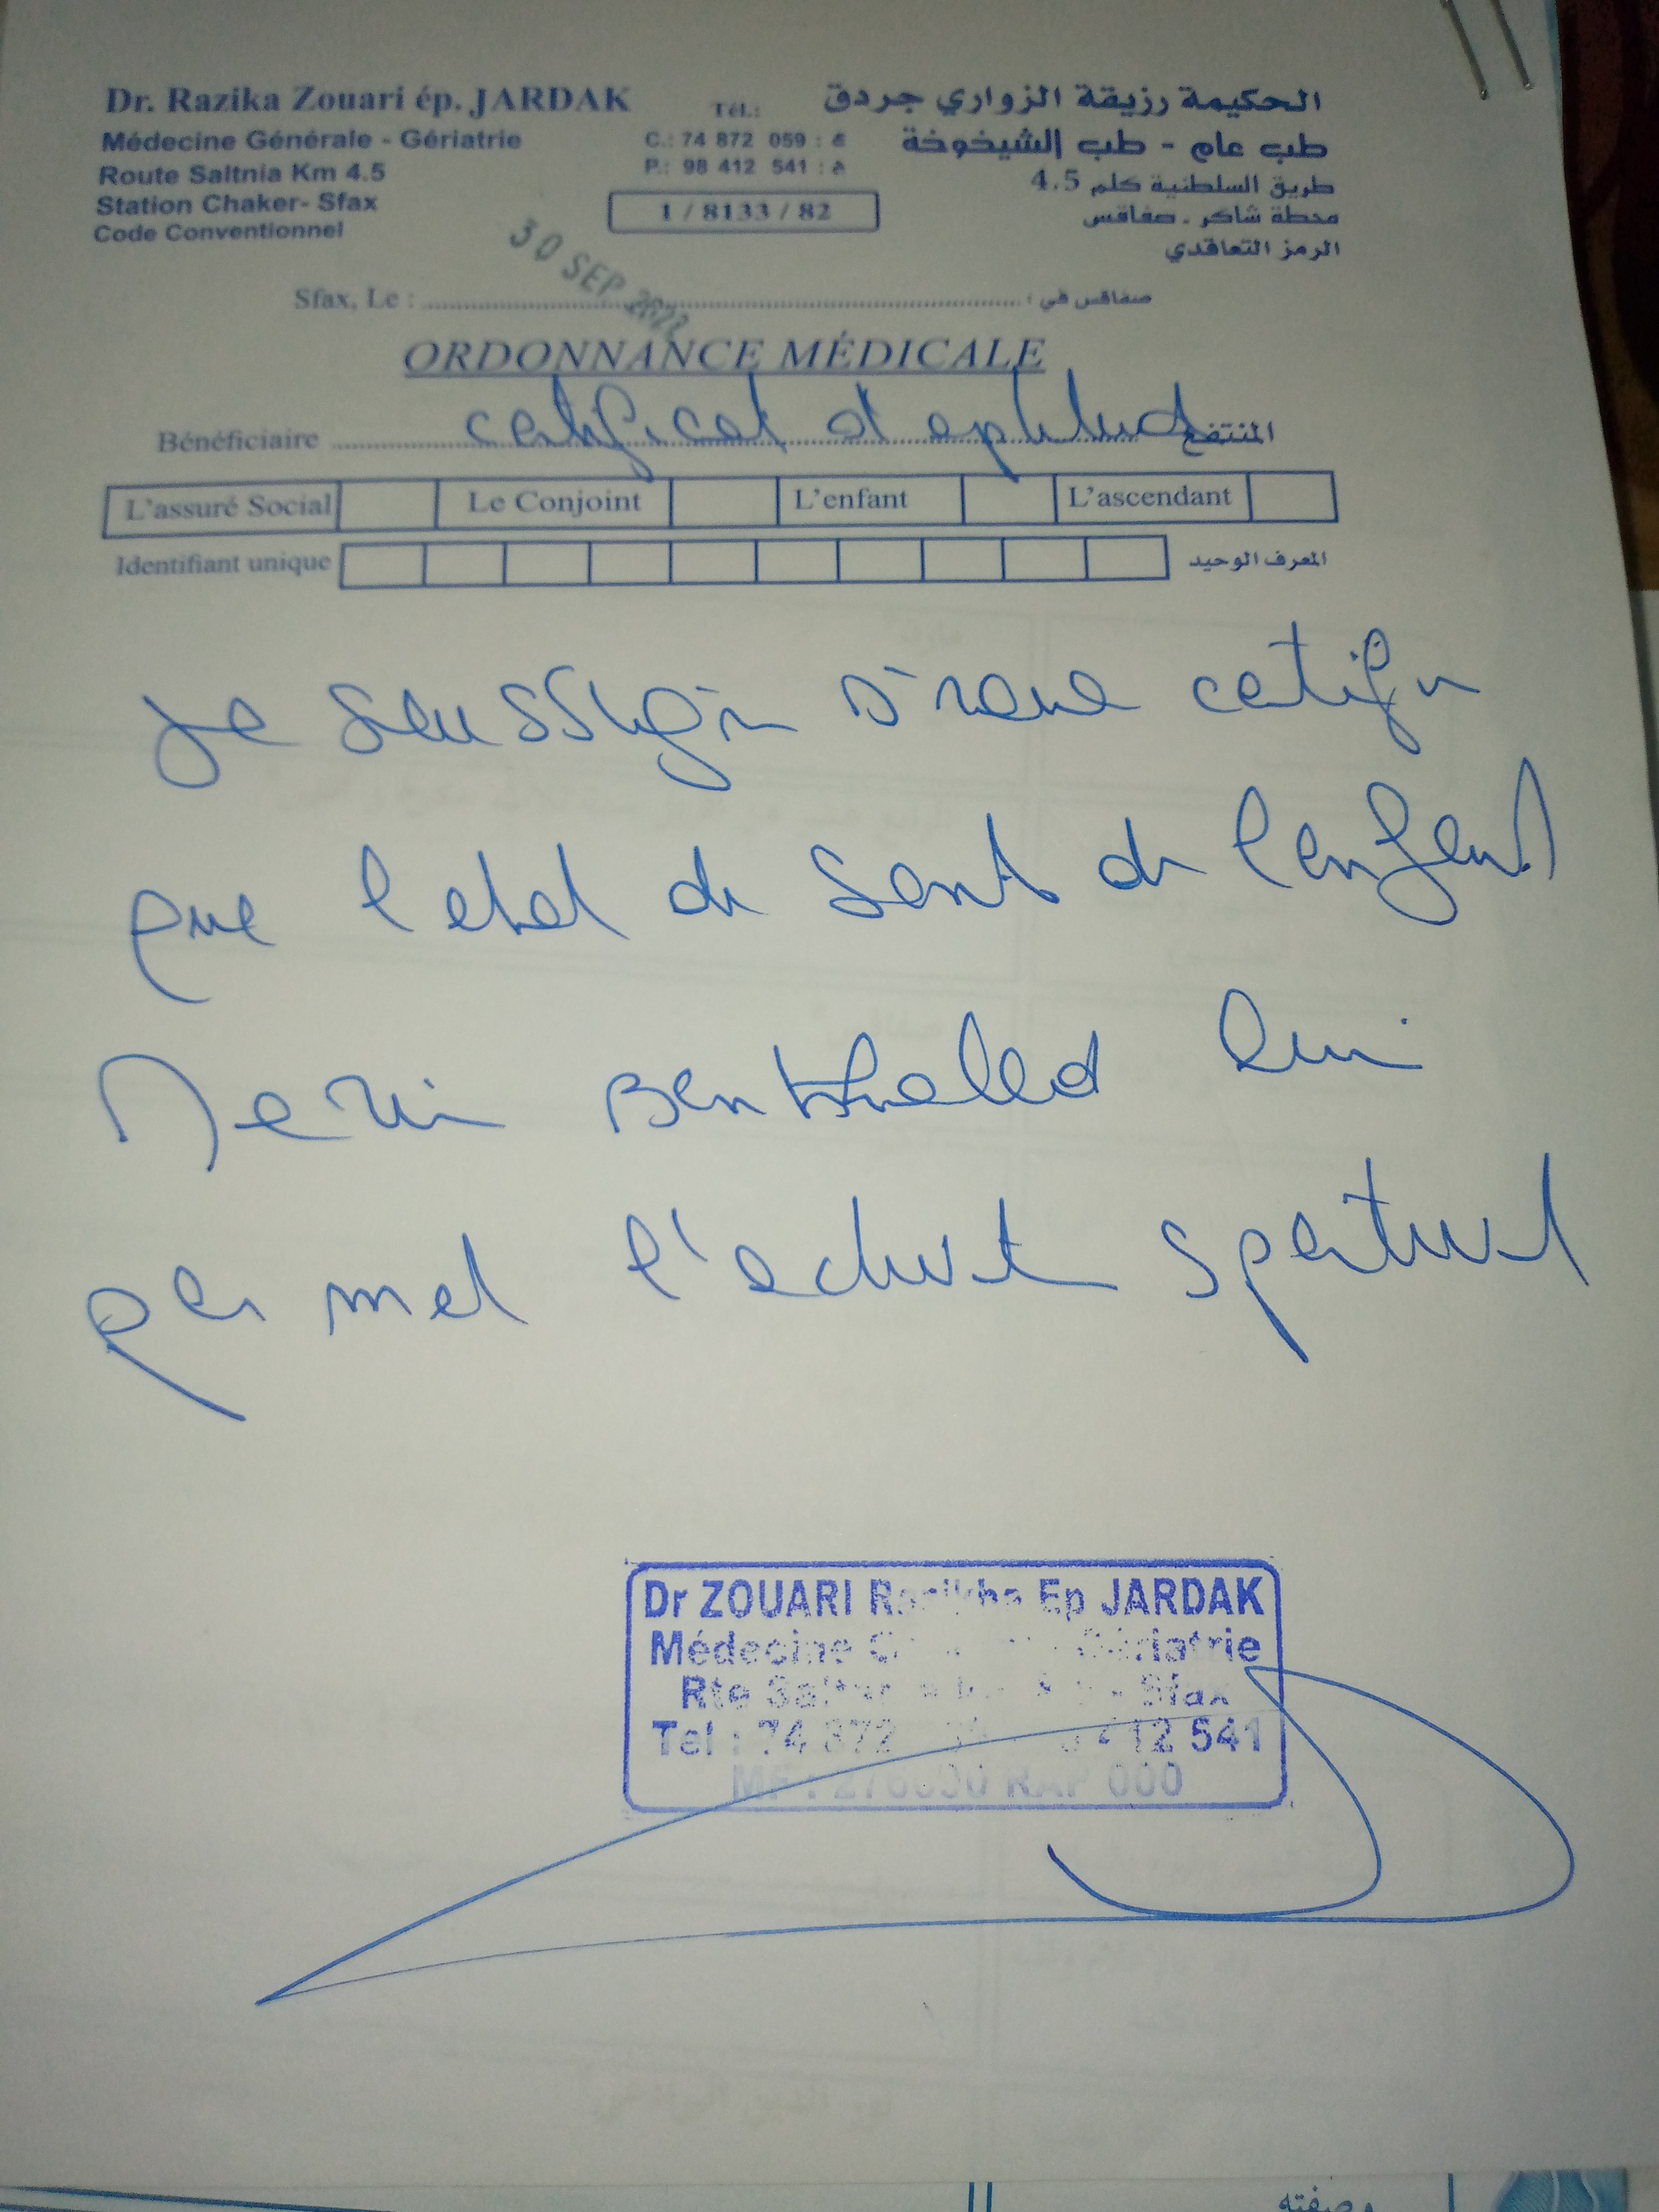 Dr. Razika Zouari ép. JARDAK
Médecine Générale - Gériatrie
Route Saltnia Km 4.5
Station Chaker- Sfax
Code Conventionnel
Tél.:
C.: 74 872 059 : ع
P.: 98 412 541 : ه
1 / 8133 / 82
الحكيمة رزيقة الزواري جردق
طب عام - طب الشيخوخة
طريق السلطنية كلم 4.5
محطة شاكر - صفاقس
الرمز التعاقدي
30 SEP
Sfax, Le : صفاقس في :
ORDONNANCE MÉDICALE
Bénéficiaire certificat d'aptitud المنتفع
L'assuré Social Le Conjoint L'enfant L'ascendant
Identifiant unique المعرف الوحيد
je certifi
que l'etat de sant de l'enfant
Ben Khaled lui
permet l'activit
Dr ZOUARI Ep JARDAK
Médecine Gériatrie
Rte Sfax
Tel : 74 872 412 541
RAP 000
وصفته